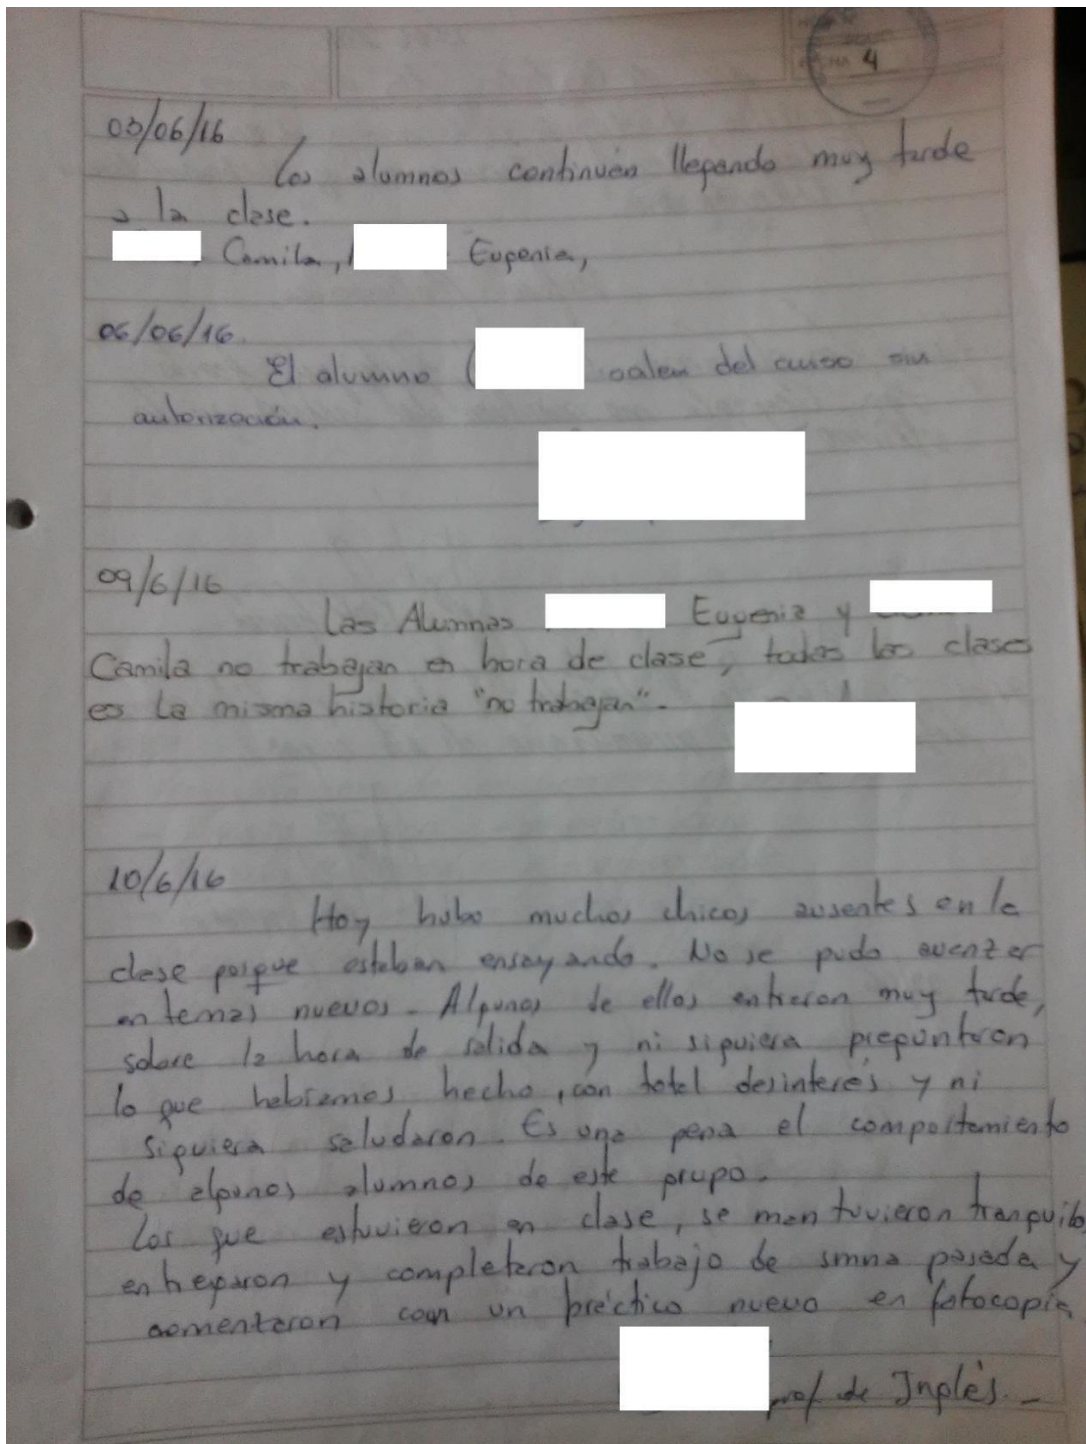 4
03/06/16
Los alumnos continúan llegando muy tarde
a la clase.
Camila, Eugenia,
06/06/16.
El alumno ( salen del curso sin
autorización.
09/6/16
Las Alumnas Eugenia y
Camila no trabajan en hora de clase, todas las clases
es la misma historia "no trabajan".
10/6/16
Hoy hubo muchos chicos ausentes en la
clase porque estaban ensayando. No se pudo avanzar
en temas nuevos. Algunos de ellos entraron muy tarde,
sobre la hora de salida y ni siquiera preguntaron
lo que habíamos hecho, con total desinterés y ni
siquiera saludaron. Es una pena el comportamiento
de algunos alumnos de este grupo.
Los que estuvieron en clase, se mantuvieron tranquilos,
entregaron y completaron trabajo de smna pasada y
comentaron con un práctico nuevo en fotocopia.
prof. de Inglés.-